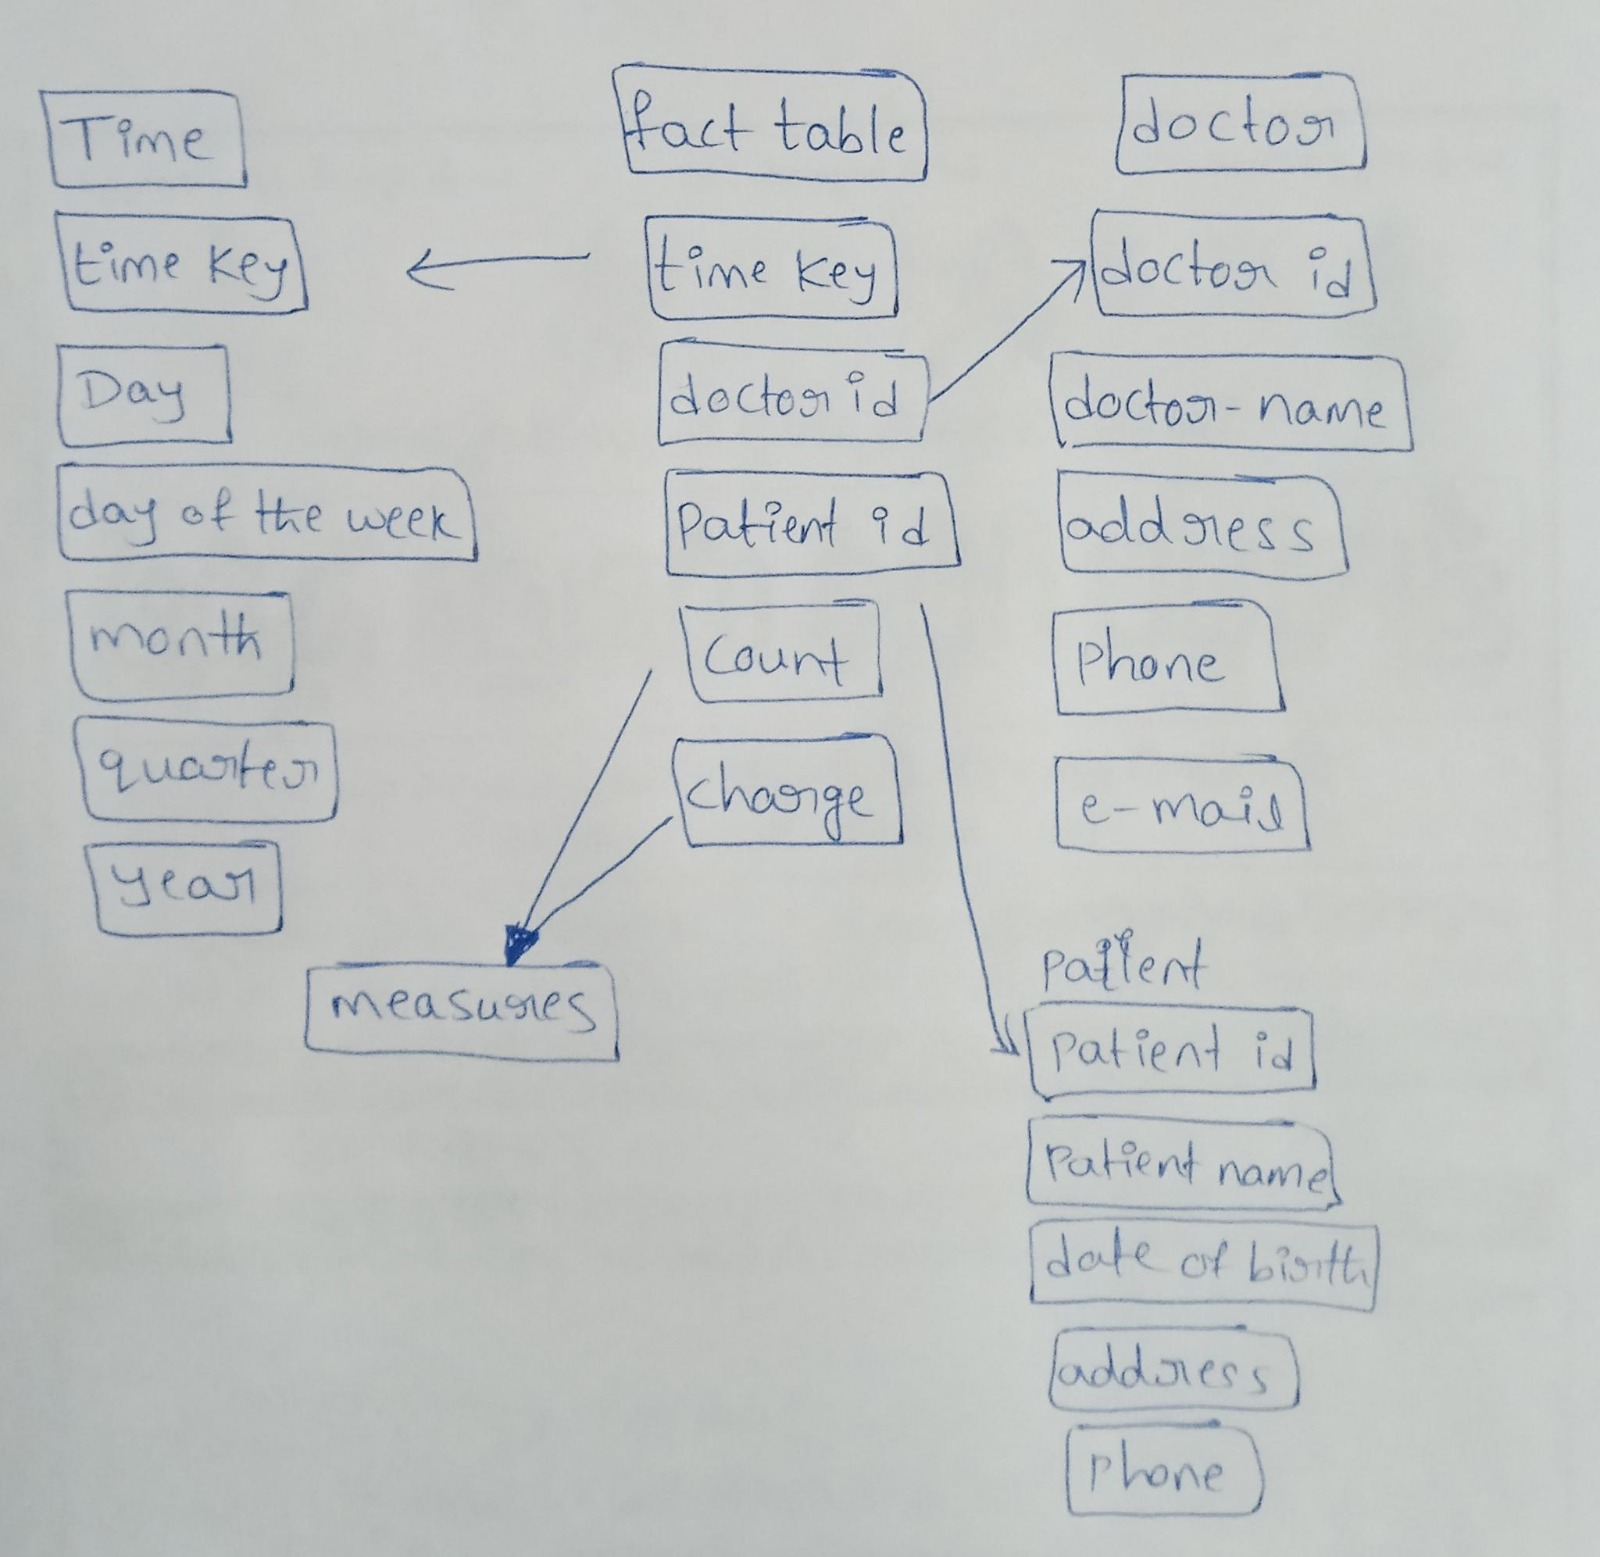 Time
time key
Day
day of the week
month
quarter
year
fact table
time key
doctor id
Patient id
Count
charge
measures
doctor
doctor id
doctor-name
address
Phone
e-mail
patient
Patient id
Patient name
date of birth
address
Phone